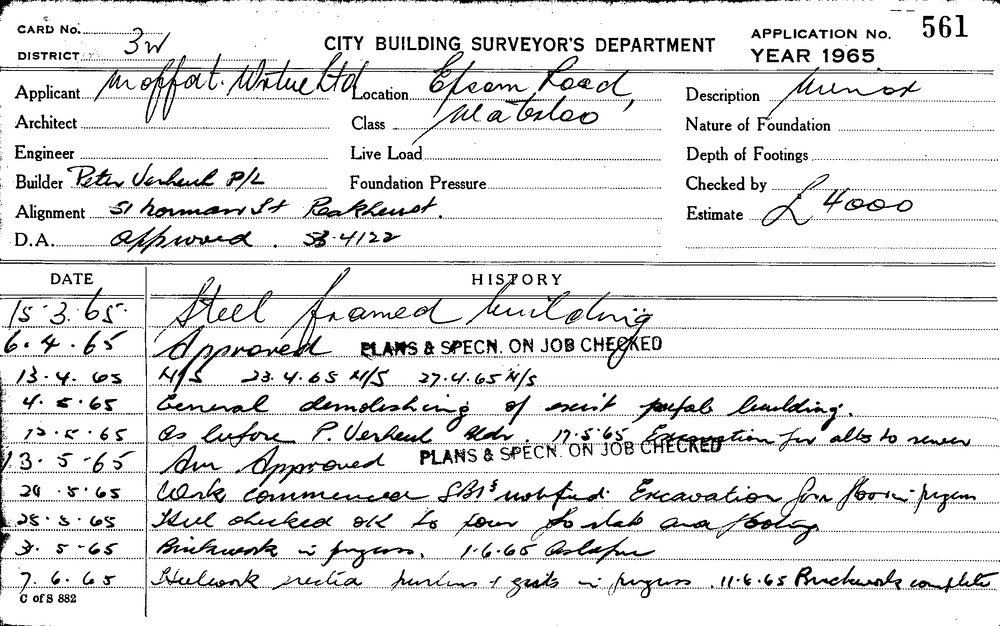 CARD No.
DISTRICT 3W
CITY BUILDING SURVEYOR'S DEPARTMENT
APPLICATION No. 561
YEAR 1965
Applicant Moffat. Virtue Ltd
Location Epsom Road, Waterloo
Description
Architect
Class
Nature of Foundation
Engineer
Live Load
Depth of Footings
Builder Peter Verheul P/L
Foundation Pressure
Checked by
Alignment 51 Norman St Peakhurst.
Estimate £4000
D.A. approved. 53.4122
DATE HISTORY
15.3.65. Steel framed building
6.4.65 Approved PLANS & SPECN. ON JOB CHECKED
13.4.65 N/S 23.4.65 N/S 27.4.65 N/S
4.5.65 General demolishing of exist prefab building.
12.5.65 As before P. Verheul Bldr. 17.5.65 Excavation for alts to sewer
13.5.65 Am Approved PLANS & SPECN. ON JOB CHECKED
20.5.65 Work commenced notified. Excavation for floor in progress
25.5.65 Steel checked OK to pour to slab and footing
3.5.65 Brickwork in progress. 1.6.65 As before
7.6.65 Steelwork erected purlins + girts in progress. 11.6.65 Brickwork complete
C of S 882